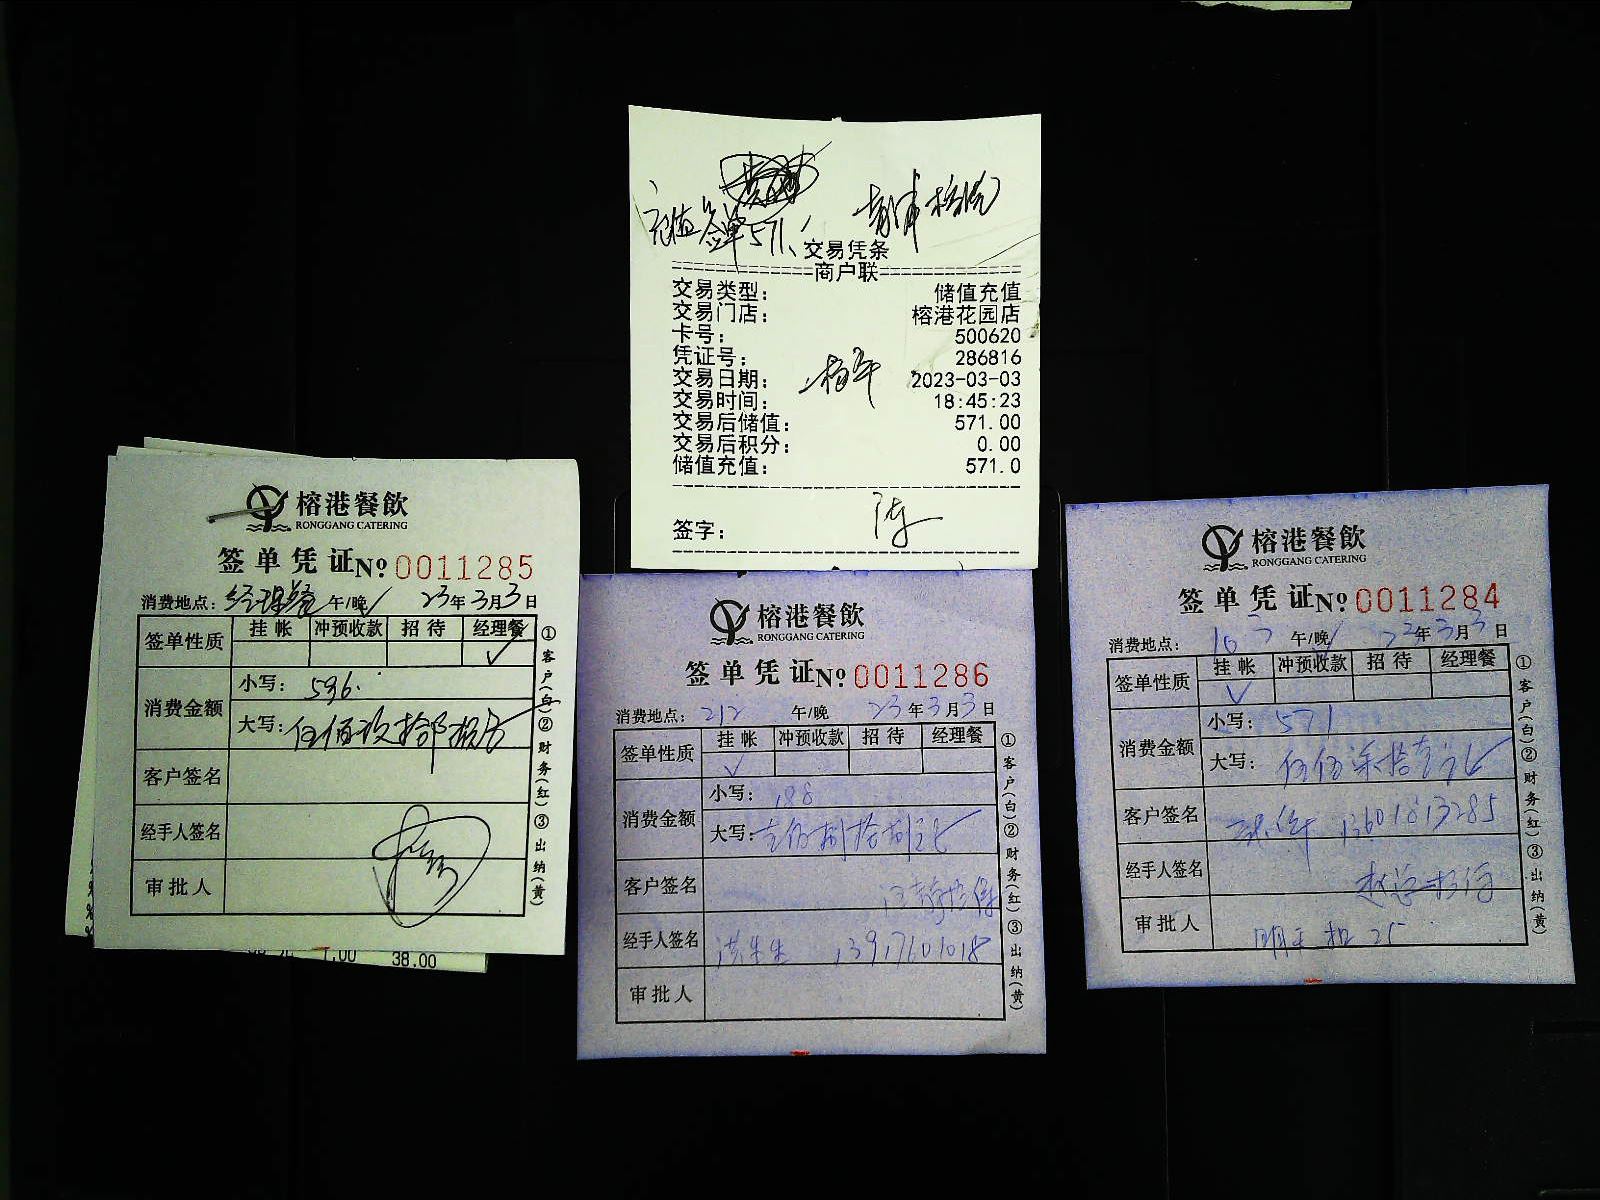 充值签单571、
交易凭条
商户联
交易类型： 储值充值
交易门店： 榕港花园店
卡号： 500620
凭证号： 286816
交易日期： 2023-03-03
交易时间： 18:45:23
交易后储值： 571.00
交易后积分： 0.00
储值充值： 571.0
签字：
榕港餐飲
RONGGANG CATERING
签单凭证 №0011285
消费地点：经理餐 午/晚√ 23年3月3日
签单性质 挂帐 冲预收款 招待 经理餐
√
消费金额 小写：596.
大写：伍佰玖拾陆
客户签名
经手人签名
审批人
①客户(白)②财务(红)③出纳(黄)
1.00 38.00
榕港餐飲
RONGGANG CATERING
签单凭证 №0011286
消费地点：212 午/晚 23年3月3日
签单性质 挂帐 冲预收款 招待 经理餐
√
消费金额 小写：188
大写：壹佰捌拾捌元
客户签名
经手人签名 洪先生 13917601018
审批人
①客户(白)②财务(红)③出纳(黄)
榕港餐飲
RONGGANG CATERING
签单凭证 №0011284
消费地点： 午/晚√ 年3月3日
签单性质 挂帐 冲预收款 招待 经理餐
√
消费金额 小写：571
大写：伍佰柒拾壹元
客户签名 13601813285
经手人签名
审批人
①客户(白)②财务(红)③出纳(黄)